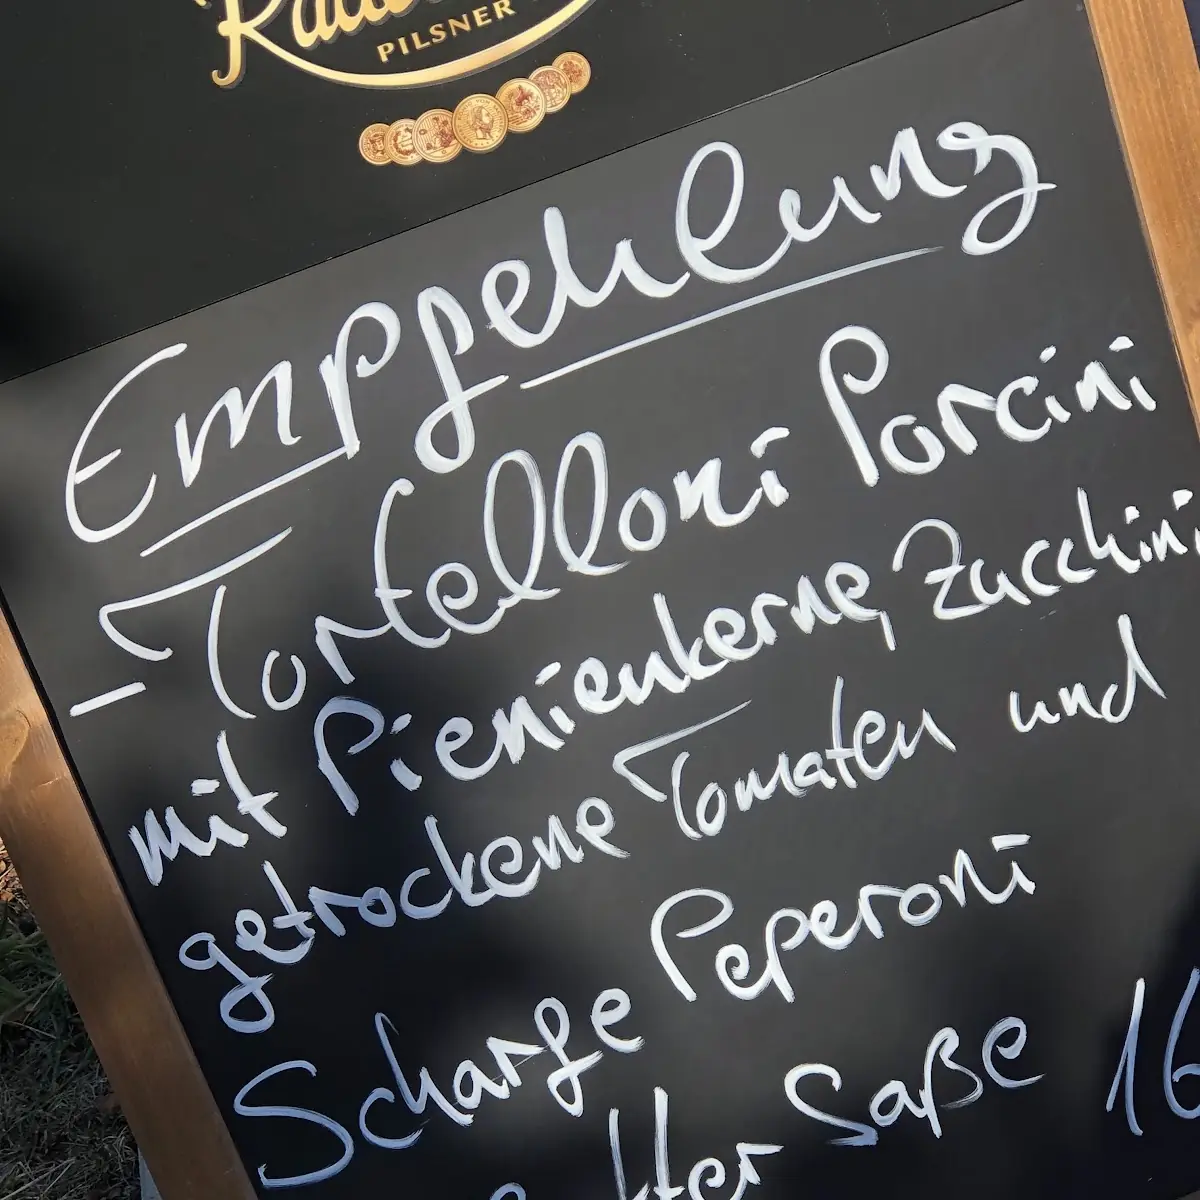 PILSNER
Empfehlung
- Tortelloni Porcini
mit Pienienkerne, Zucchini
getrockene Tomaten und
Scharfe Peperoni
Saße 16